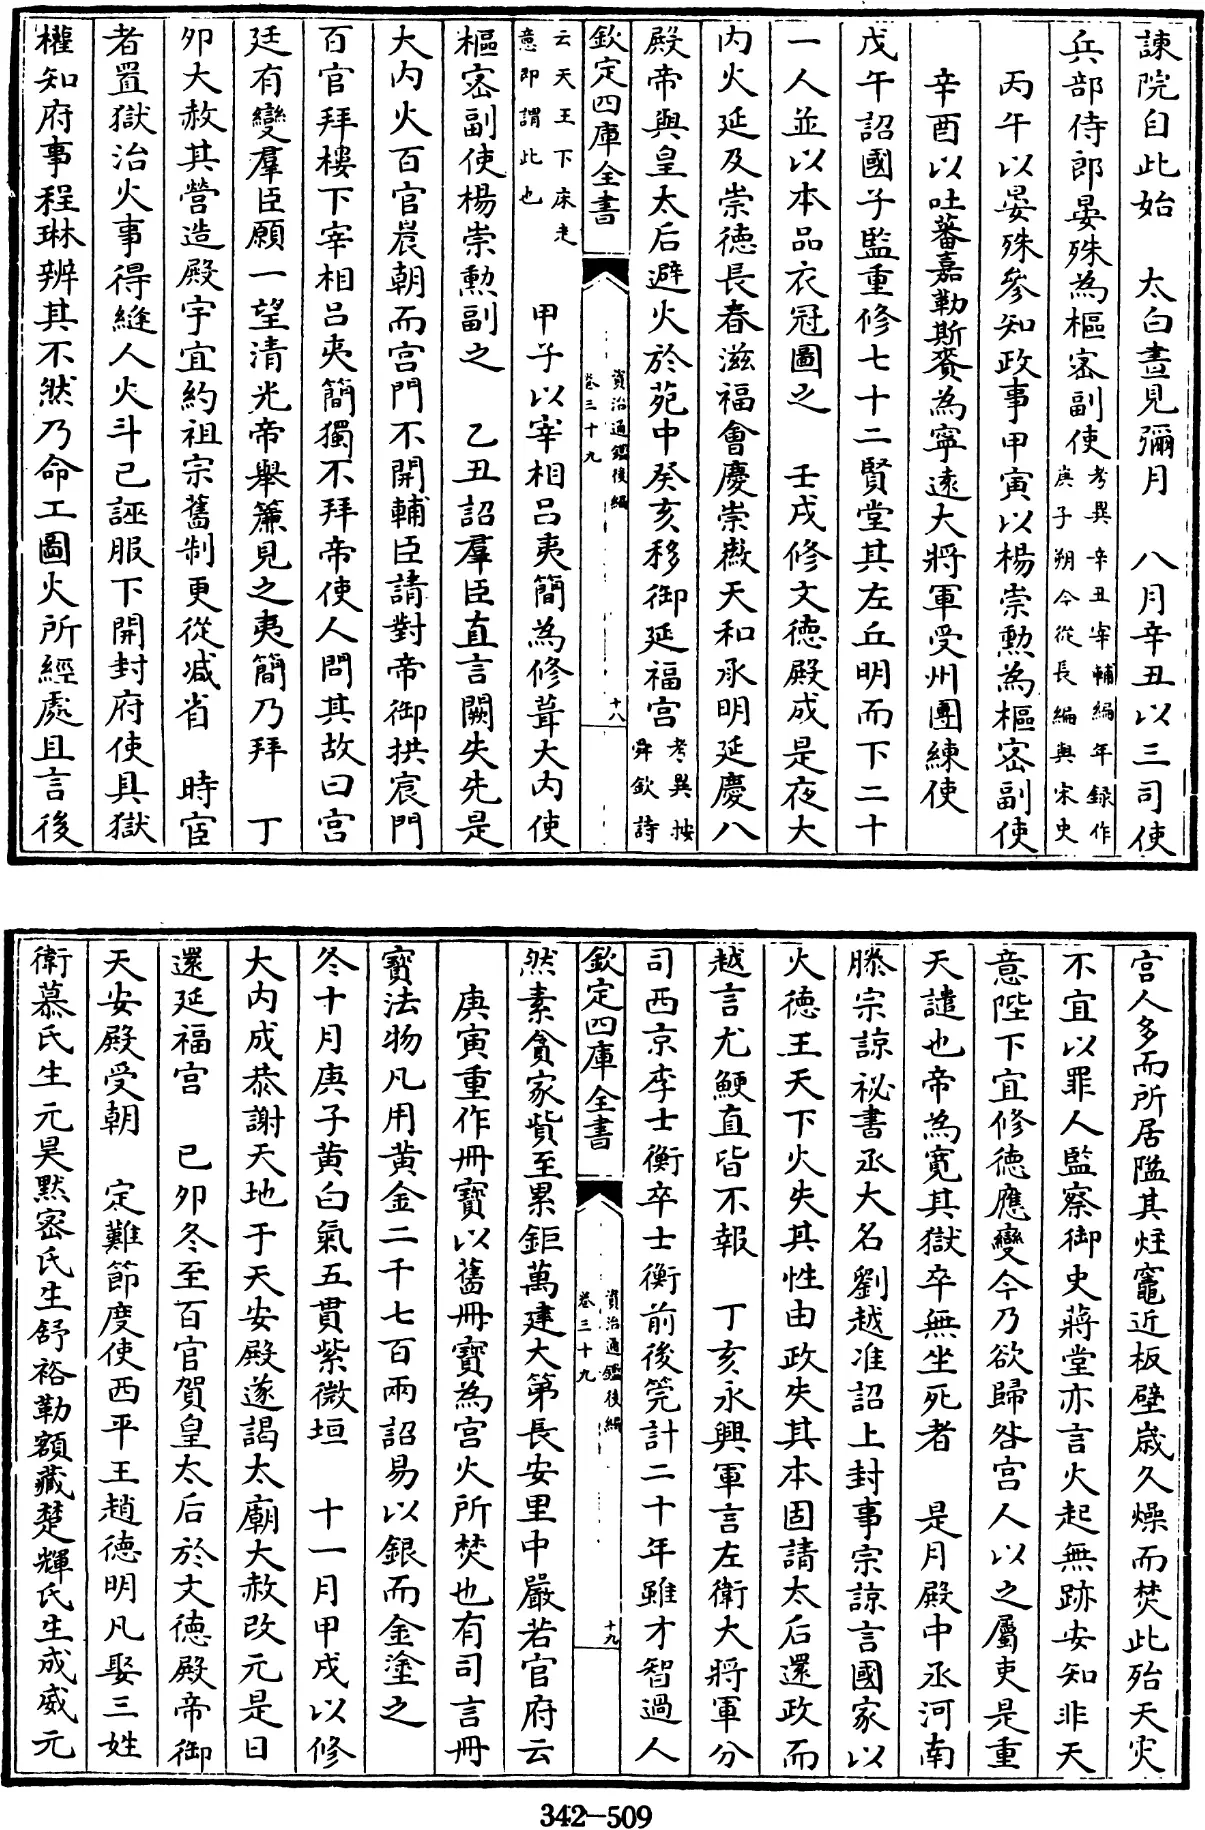 諫院自此始　太白晝見彌月　八月辛丑以三司使
兵部侍郎晏殊為樞密副使考異辛丑宰輔編年録作庚子朔今從長編與宋史
丙午以晏殊參知政事甲寅以楊崇勲為樞密副使
辛酉以吐蕃嘉勒斯賚為寧遠大將軍受州團練使
戊午詔國子監重修七十二賢堂其左丘明而下二十
一人並以本品衣冠圖之　壬戌修文德殿成是夜大
内火延及崇德長春滋福會慶崇徽天和承明延慶八
殿帝與皇太后避火於苑中癸亥移御延福宫考異按舜欽詩
欽定四庫全書
資治通鑑後編
卷三十九
十八
云天王下床走意即謂此也　甲子以宰相吕夷簡為修葺大内使
樞密副使楊崇勲副之　乙丑詔羣臣直言闕失先是
大内火百官晨朝而宫門不開輔臣請對帝御拱宸門
百官拜樓下宰相吕夷簡獨不拜帝使人問其故曰宫
廷有變羣臣願一望清光帝舉簾見之夷簡乃拜　丁
卯大赦其營造殿宇宜約祖宗舊制更從減省　時宦
者置獄治火事得縫人火斗已誣服下開封府使具獄
權知府事程琳辨其不然乃命工圖火所經處且言後
宫人多而所居隘其炷竈近板壁歲久燥而焚此殆天災
不宜以罪人監察御史蔣堂亦言火起無跡安知非天
意陛下宜修德應變今乃欲歸咎宫人以之屬吏是重
天譴也帝為寛其獄卒無坐死者　是月殿中丞河南
滕宗諒祕書丞大名劉越准詔上封事宗諒言國家以
火德王天下火失其性由政失其本固請太后還政而
越言尤鯁直皆不報　丁亥永興軍言左衛大將軍分
司西京李士衡卒士衡前後筦計二十年雖才智過人
欽定四庫全書
資治通鑑後編
卷三十九
十九
然素貪家貲至累鉅萬建大第長安里中嚴若官府云
庚寅重作冊寶以舊冊寶為宫火所焚也有司言冊
寶法物凡用黄金二千七百兩詔易以銀而金塗之
冬十月庚子黄白氣五貫紫微垣　十一月甲戌以修
大内成恭謝天地于天安殿遂謁太廟大赦改元是日
還延福宫　已卯冬至百官賀皇太后於文德殿帝御
天安殿受朝　定難節度使西平王趙德明凡娶三姓
衛慕氏生元昊黙密氏生舒裕勒額藏楚輝氏生成威元
342—509